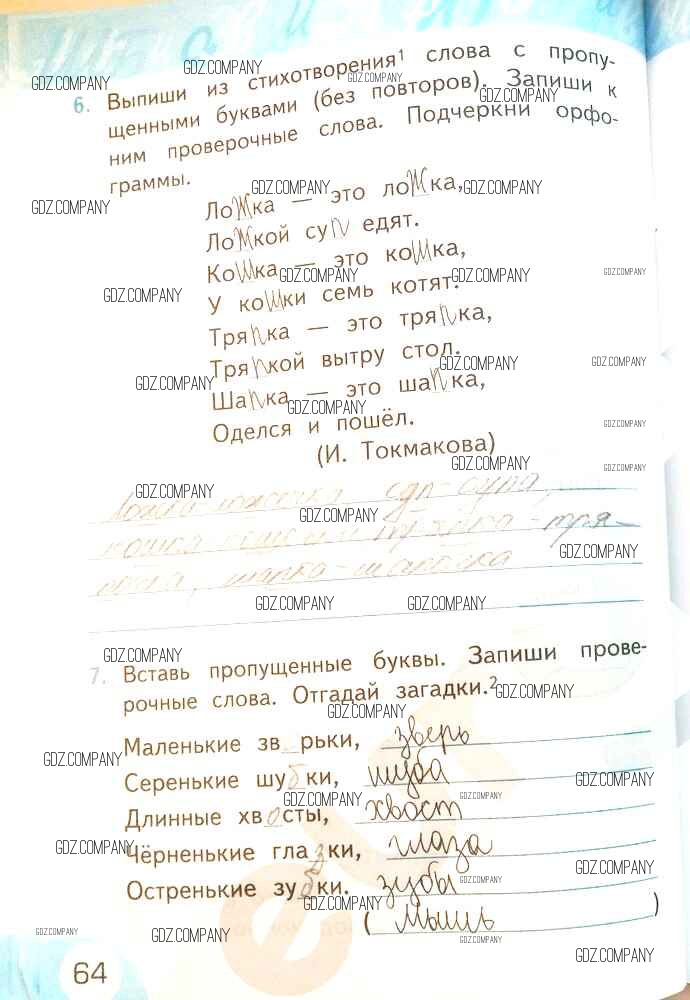 6. Выпиши из стихотворения¹ слова с пропу-
щенными буквами (без повторов). Запиши к
ним проверочные слова. Подчеркни орфо-
граммы.
Ложка — это ложка,
Ложкой суп едят.
Кошка — это кошка,
У кошки семь котят.
Тряпка — это тряпка,
Тряпкой вытру стол.
Шапка — это шапка,
Оделся и пошёл.
(И. Токмакова)
ложка-ложечка суп-супа,
кошка тряпка-тря-
шапка-шапочка
7. Вставь пропущенные буквы. Запиши прове-
рочные слова. Отгадай загадки.²
Маленькие зв_рьки, зверь
Серенькие шубки, шуба
Длинные хвосты, хвост
Чёрненькие глазки, глаза
Остренькие зубки. зубы
(мышь)
64
GDZ.COMPANY